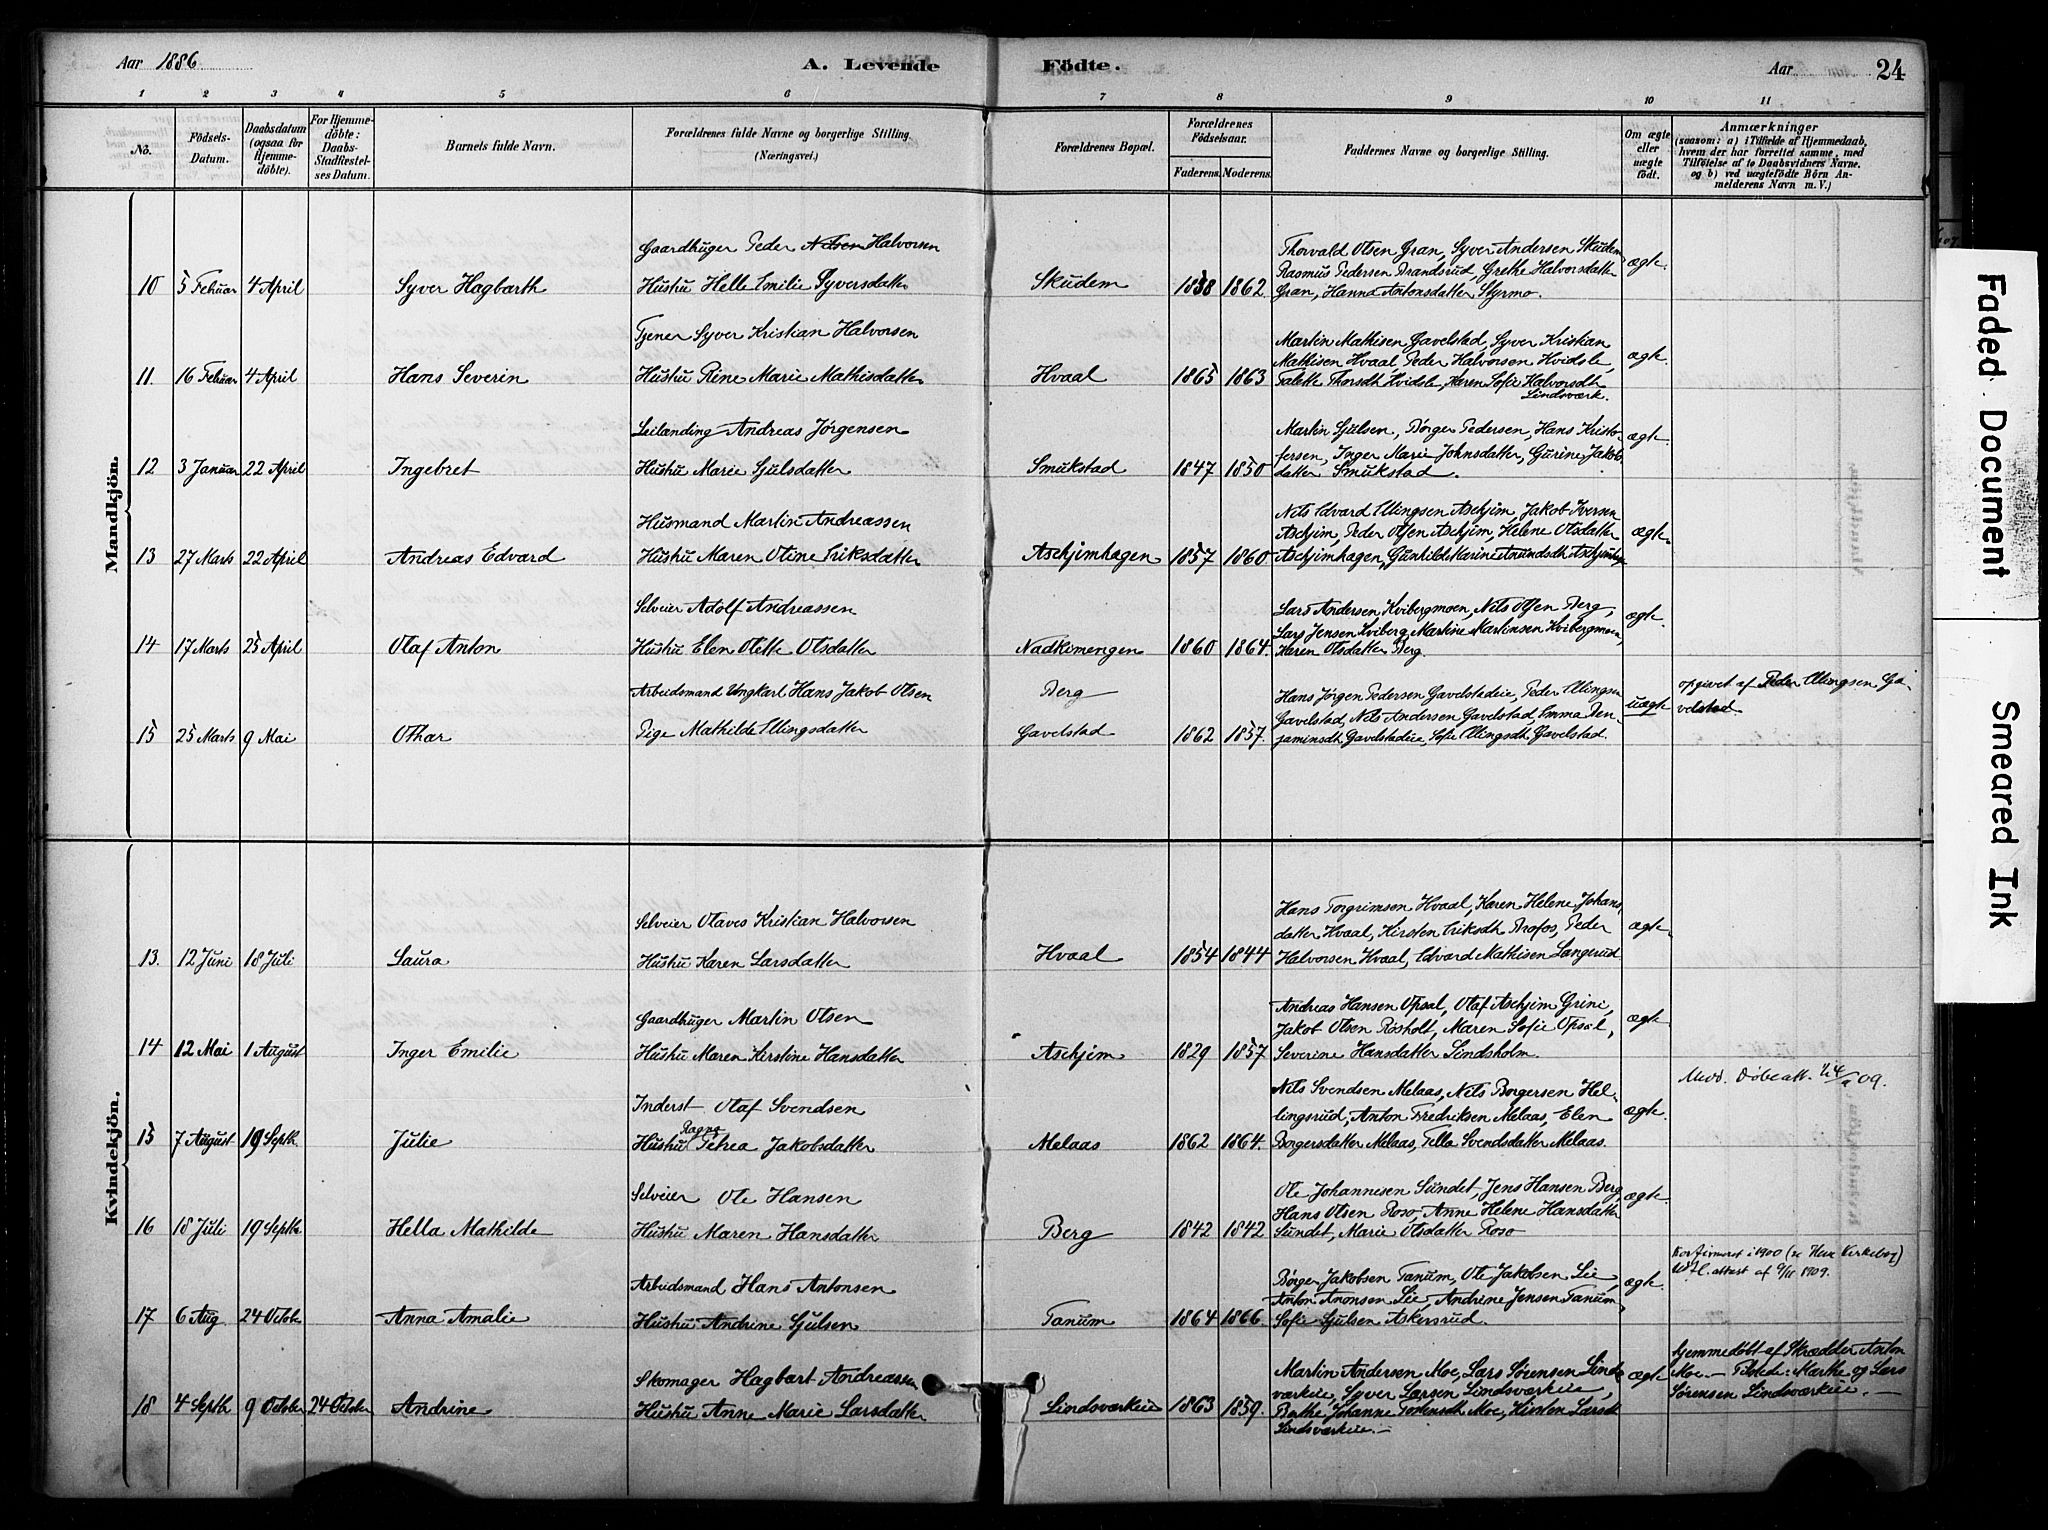 Aar 1886
A. Levende
Födte.
Aar
24
1 2 3 4 5 6 7 8 9 10 11
No.
Födsels-
Datum.
Daabsdatum
(ogsaa for
Hjemme-
döbte).
For Hjemme-
döbte:
Daabs-
Stadfæstel-
ses Datum.
Barnets fulde Navn.
Forældrenes fulde Navne og borgerlige Stilling.
(Næringsvei.)
Forældrenes Bopæl.
Forældrenes
Födselsaar.
Faderens. Moderens.
Faddernes Navne og borgerlige Stilling.
Om ægte
eller
uægte
födt.
Anmærkninger
(saasom: a) i Tilfælde af Hjemmedaab,
hvem der har forrettet samme, med
Tilföielse af to Daabsvidners Navne.
og b) ved uægtefödte Börn An-
melderens Navn m. V.)
Mandkjön.
Gaardbruger Peder Halvorsen
Thorvald Olsen Gran, Syver Andersen Skudem
Rasmus Pedersen Brandsrud, Grethe Halvorsdatter
ægte
10 5 Februar 4 April Syver Hagbarth Hustru Helle Emilie Syversdatter Skudem 1838 1862 Gran, Hanna Antonsdatter Styrmo.
Tjener Syver Kristian Halvorsen
Martin Mathisen Gavelstad, Syver Kristian
Mathisen Hvaal, Peder Halvorsen Hvidsle,
ægte
11. 16 Februar 4 April Hans Severin Hustru Rine Marie Mathisdatter Hvaal 1865 1863 Talette Thorsdtr Hvidsle, Karen Sofie Halvorsdtr
Lindsværk.
Leilænding Andreas Jörgensen
Martin Sjulsen, Börger Pedersen, Hans Kristo-
fersen, Inger Marie Johnsdatter, Gurine Jakob
ægte
12 3 Januar 22 April Ingebret Hustru Marie Sjulsdatter Smukstad 1847 1850 datter Smukstad.
Husmand Martin Andreassen
Nils Edvard Ellingsen Aschjim, Jakob Iversen
Aschjim, Peder Olsen Aschjim, Helene Olsdatter
ægte
13 27 Marts 22 April Andreas Edvard Hustru Maren Otine Eriksdatter Aschjimhagen 1857 1860 Aschjimhagen, Gunhild Marine Amundsdtr Aschjimhg
Selveier Adolf Andreassen
Lars Andersen Kvibergmoen, Nils Olsen Berg,
Lars Jensen Kviberg, Martine Martinsen Kvibergmoen,
ægte
14 17 Marts 25 April Olaf Anton Hustru Elen Olette Olsdatter Nadkimengen 1860 1864. Karen Olsdatter Berg.
Arbeidsmand Ungkarl Hans Jakob Olsen
Berg
Hans Jörgen Pedersen Gavelstadeie, Peder Ellingsen
Gavelstad, Nils Andersen Gavelstad, Emma Ben-
uægte
opgivet af Peder Ellingsen Ga-
velstad.
15 25 Marts 9 Mai Othar Pige Mathilde Ellingsdatter Gavelstad 1862 1857. jaminsdtr Gavelstadeie, Sofie Ellingsdtr Gavelstad.
Kvindekjön.
Selveier Olaves Kristian Halvorsen
Hans Torgrimsen Hvaal, Karen Helene Johans-
datter Hvaal, Kirsten Eriksdtr Brofos, Peder
ægte
13. 12 Juni 18 Juli Laura Hustru Karen Larsdatter Hvaal 1854 1844 Halvorsen Hvaal, Edvard Mathisen Langerud
Gaardbruger Martin Olsen
Andreas Hansen Opsal, Olaf Aschjim Grini,
Jakob Olsen Rosholt, Maren Sofie Opsal,
ægte
14 12 Mai 1 August Inger Emilie Hustru Maren Kirstine Hansdatter Aschjem 1829 1857 Severine Hansdatter Lindsholm.
Inderst Olaf Svendsen
Nils Svendsen Melaas, Nils Borgersen Hel-
lingsrud, Anton Fredriksen Melaas, Elen
ægte
Udd. Döbeatt. 09.
Ragna
15 7 August 19 Septbr. Julie Hustru Petrea Jakobsdatter Melaas 1862 1864. Borgersdatter Melaas, Tella Svendsdatter Melaas.
Selveier Ole Hansen
Ole Johannesen Sundet, Jens Hansen Berg,
Hans Olsen Roso, Anne Helene Hansdatter
ægte
16 18 Juli 19 Septbr Hella Mathilde Hustru Maren Hansdatter Berg 1842 1842 Sundet, Marie Olsdatter Roso
Arbeidsmand Hans Antonsen
Börger Jakobsen Tanum, Ole Jakobsen Lie,
Anton Aronsen Lie, Andrine Jensen Tanum
ægte
Konfirmeret i 1900 (se Kirkebog)
attest af 1909.
17 6 Aug. 24 Octobr Anna Amalie Hustru Andrine Sjulsen Tanum 1864 1866. Sofie Sjulsen Askersrud.
Skomager Hagbart Andreassen
Martin Andersen Moe, Lars Sörensen Linds-
værkeie, Syver Larsen Lindsværkeie,
ægte
hjemmedöbt af Skrædder Anton
Moe. - Tilstede: Marthe og Lars
Sörensen Lindsværkeie. -
18 4 Septbr 9 October 24 October Andrine Hustru Anne Marie Larsdatter Lindsværkeie 1863 1859. Berthe Johanne Torensdtr Moe, Kirsten Larsdtr
Lindsværkeie. -
Faded Document
Smeared Ink